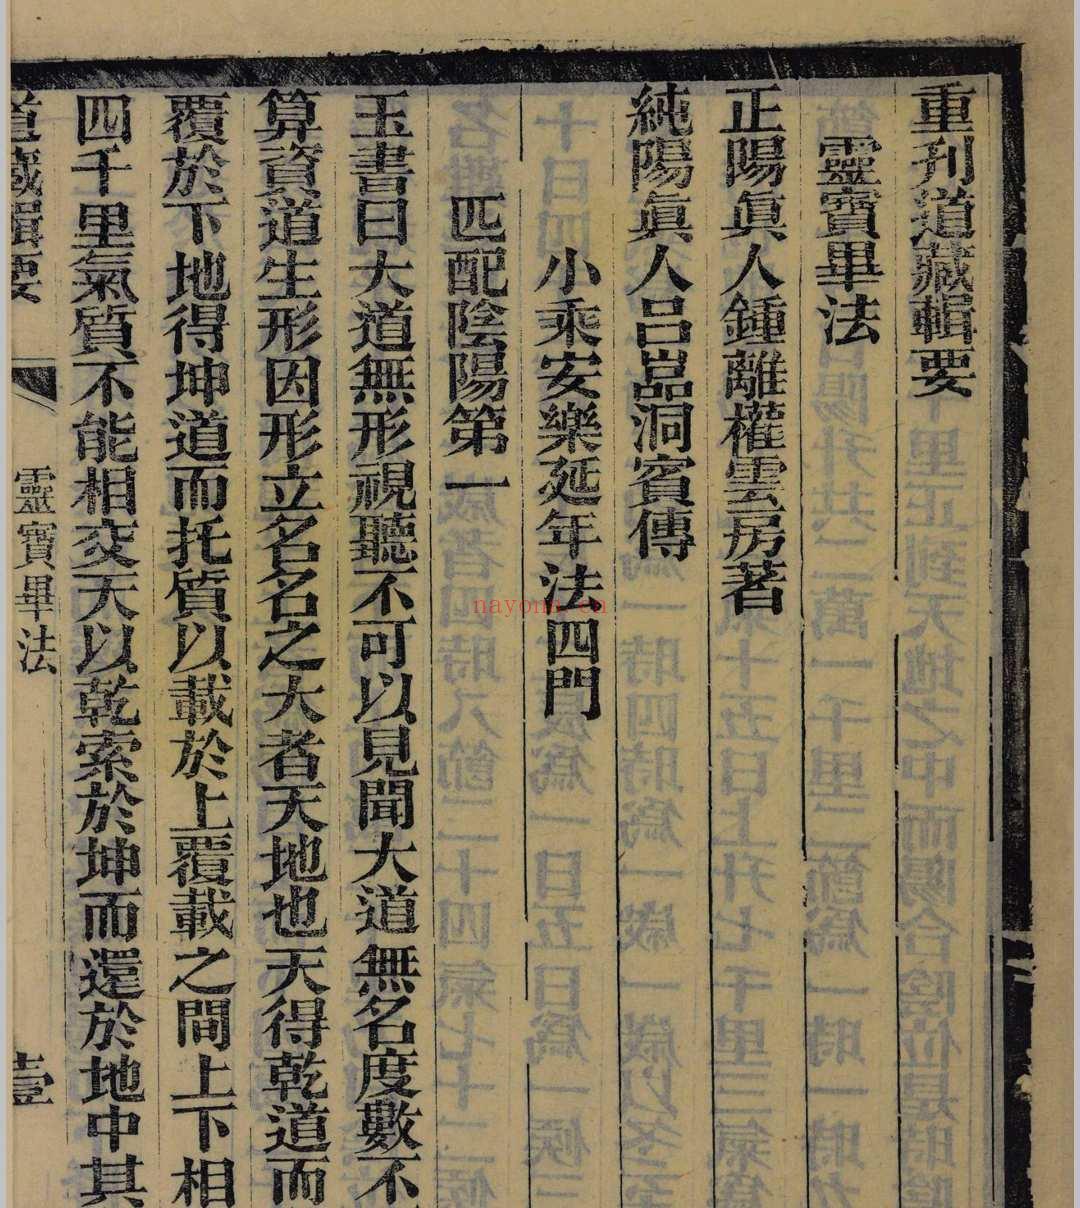 重刋道藏輯要
靈寶畢法
正陽眞人鍾離權雲房著
純陽眞人呂嵓洞賓傳
小乘安樂延年法四門
匹配陰陽第一
玉書曰大道無形視聽不可以見聞大道無名度數不
算資道生形因形立名名之大者天地也天得乾道而
覆於下地得坤道而托質以載於上覆載之間上下相
四千里氣質不能相交天以乾索於坤而還於地中其
道藏輯要 靈寶畢法 壹
nayona.cn